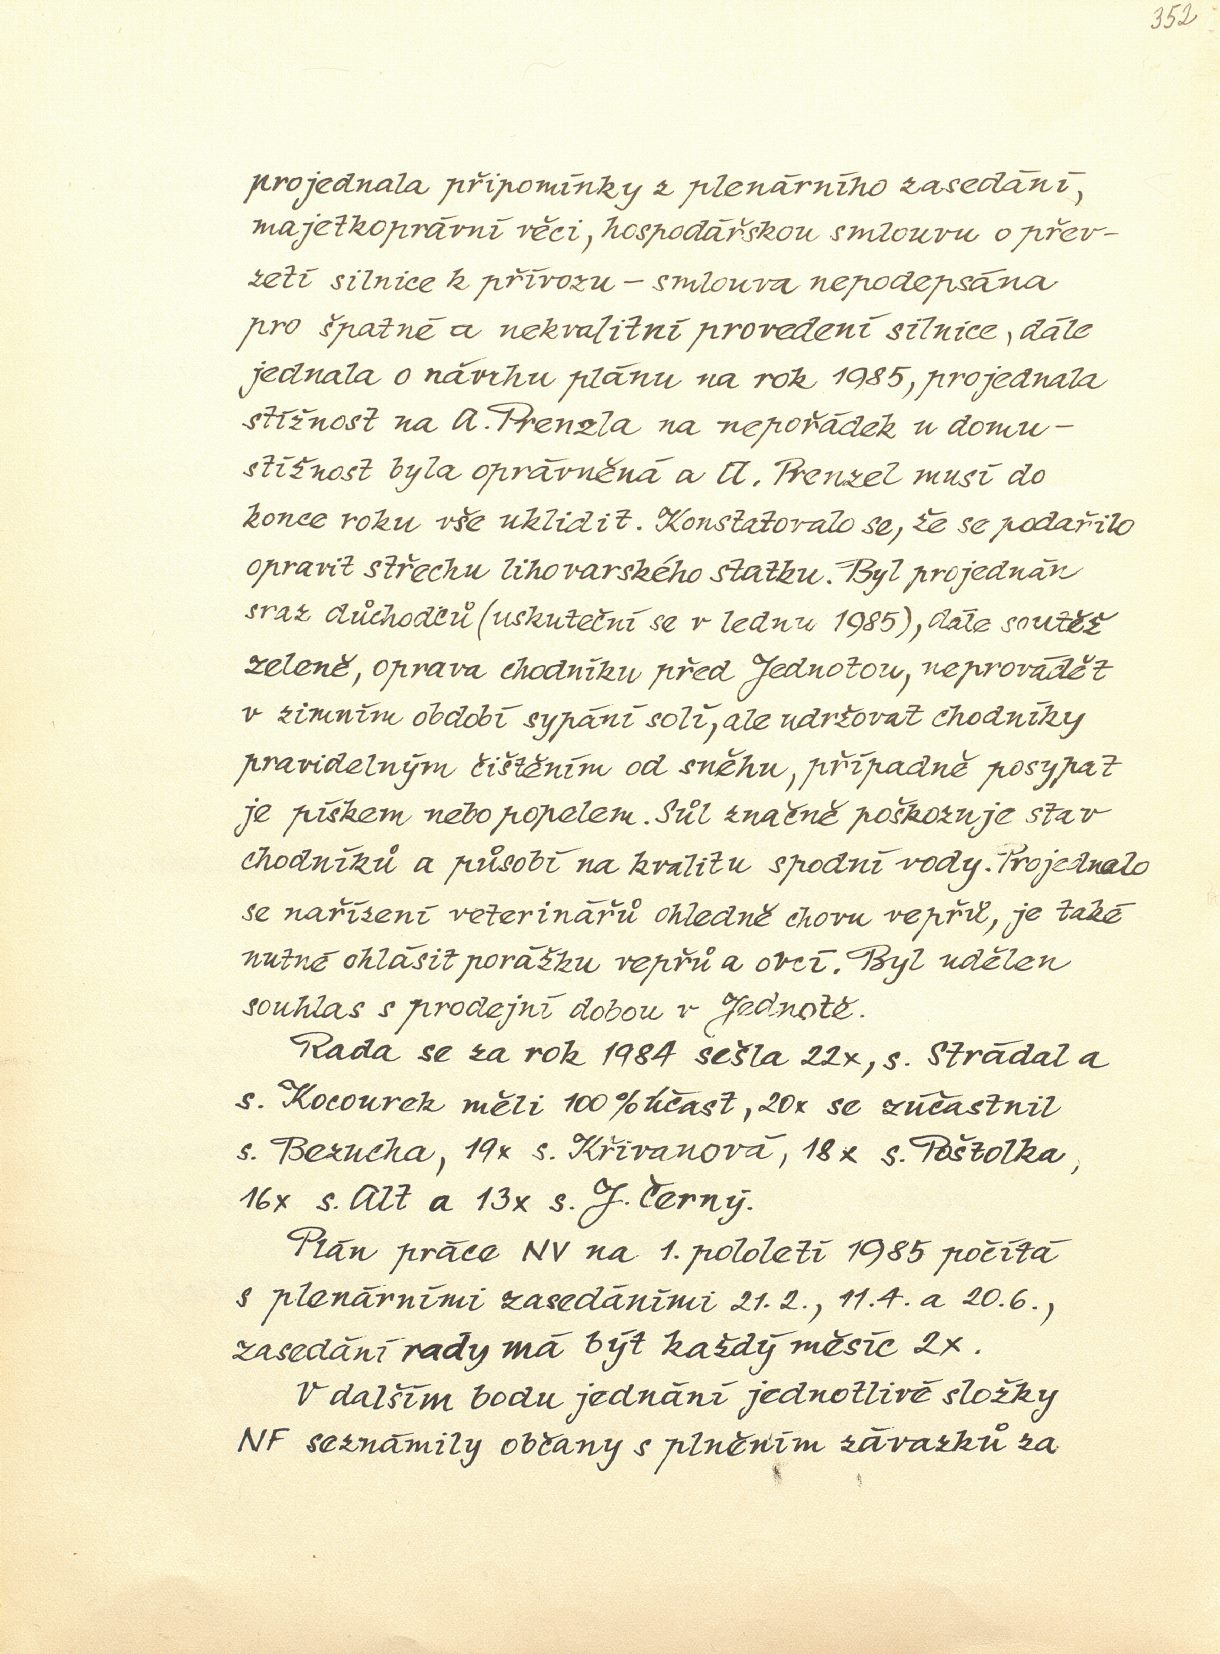 352
projednala připomínky z plenárního zasedání,
majetkoprávní věci, hospodářskou smlouvu o přev-
zetí silnice k přívozu – smlouva nepodepsána
pro špatné a nekvalitní provedení silnice, dále
jednala o návrhu plánu na rok 1985, projednala
stížnost na A. Prenzla na nepořádek u domu –
stížnost byla oprávněná a A. Prenzel musí do
konce roku vše uklidit. Konstatovalo se, že se podařilo
opravit střechu lihovarského statku. Byl projednán
sraz důchodců (uskuteční se v lednu 1985), dále soutěž
zeleně, oprava chodníku před Jednotou, neprovádět
v zimním období sypání solí, ale udržovat chodníky
pravidelným čištěním od sněhu, případně posypat
je pískem nebo popelem. Sůl značně poškozuje stav
chodníků a působí na kvalitu spodní vody. Projednalo
se nařízení veterinářů ohledně chovu vepřů, je také
nutné ohlásit porážku vepřů a ovcí. Byl udělen
souhlas s prodejní dobou v Jednotě.
Rada se za rok 1984 sešla 22x, s. Strádal a
s. Kocourek měli 100% účast, 20x se zúčastnil
s. Bezucha, 19x s. Křivanová, 18x s. Poštolka,
16x s. Alt a 13x s. J. Černý.
Plán práce NV na 1. pololetí 1985 počítá
s plenárními zasedáními 21. 2., 11. 4. a 20. 6.,
zasedání rady má být každý měsíc 2x.
V dalším bodu jednání jednotlivé složky
NF seznámily občany s plněním závazků za